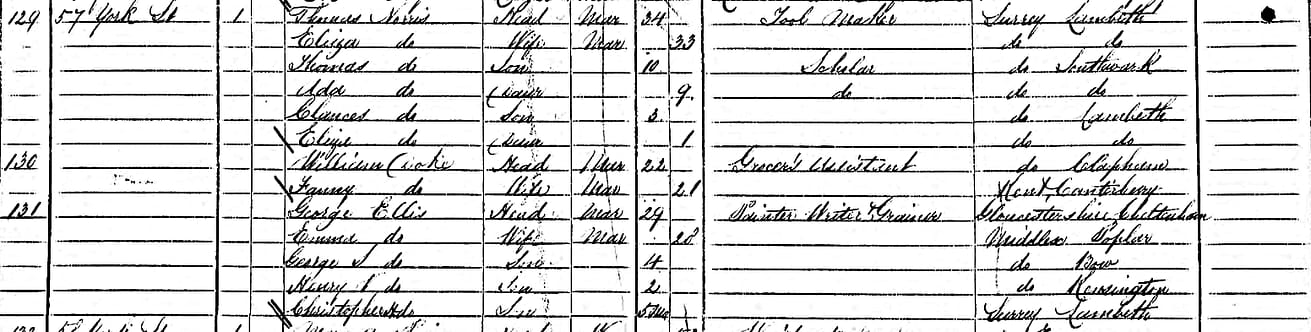 129 57 York St 1 Thomas Norris Head Mar 34 Tool Maker Surrey Lambeth
Eliza do Wife Mar 33 do do
Thomas do Son 10 Scholar do Southwark
Ada do Daur 9 do do do
Son 3 do Lambeth
Eliza do Daur 1 do do
130 William Cooke Head Mar 22 Grocer's Assistant do Clapham
Fanny do Wife Mar 21 Kent Canterbury
131 George Ellis Head Mar 29 Painter Writer & Grainer Gloucestershire Cheltenham
Emma do Wife Mar 28 Middlx Poplar
George do Son 4 do Bow
Henry do Son 2 do Kensington
Christopher do Son 5 Mo Surrey Lambeth